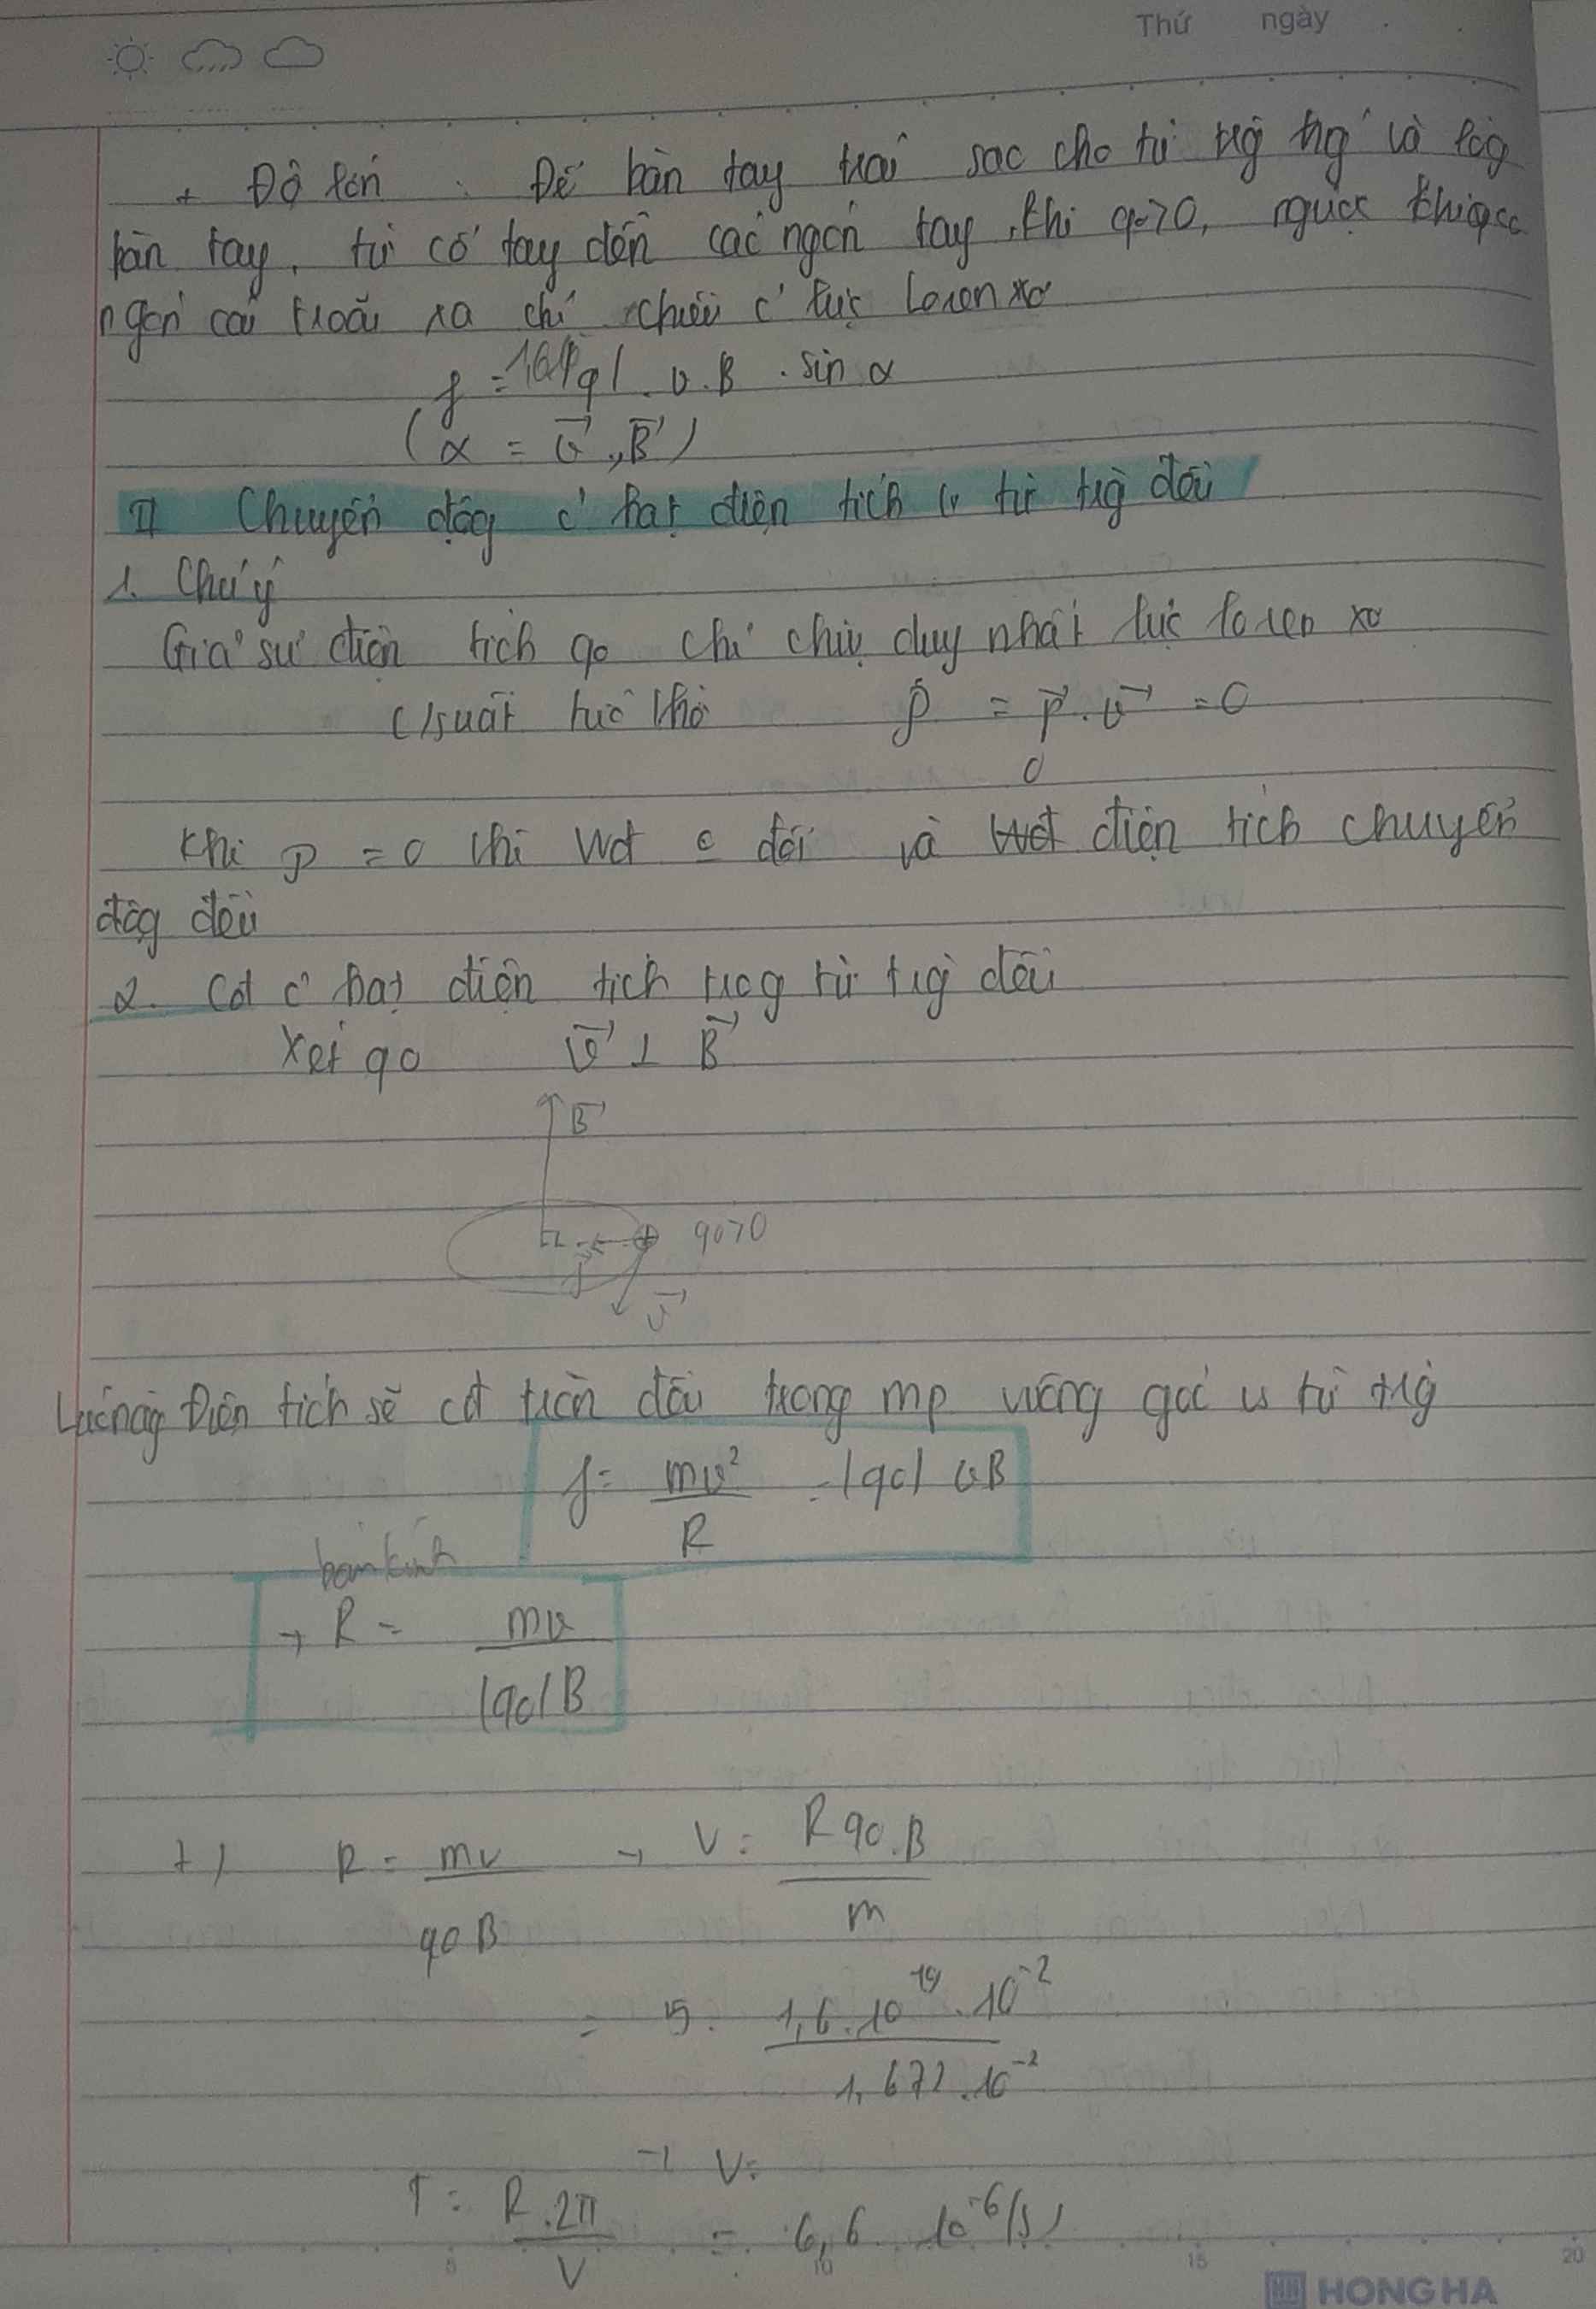 Thứ ngày
+ Độ lớn : Để bàn tay trái sao cho từ trg hg và lòg
bàn tay, từ cổ tay đến các ngón tay, khi q0>0, ngược
ngón cái choãi ra chỉ chiều c' lực Lorenxơ
f = |q| . v. B . sin α
(α = v⃗, B⃗)
II Chuyển độg c' hạt điện tích tr từ trg đều
1. Chú ý
Giả sử điện tích q0 chỉ chịu duy nhất lực lo ren xơ
C/suất tức thờ p = F⃗. v⃗ = 0
0
Khi p = 0 thì Wđ đổi và điện tích chuyển
độg đều
2. Cđ c' hạt điện tích trog từ trg đều
Xét q0 v⃗ ⊥ B⃗
B⃗
q0>0
f
v⃗
Lúc này Điện tích sẽ cđ tròn đều trong mp vuông góc vs từ trg
f = mv²/R = |q0| vB
bán kính
→ R = mv/|q0|B
R = mv/q0B → V = R q0.B/m
= 5. 1,6.10⁻¹⁹.10⁻²/1,672.10⁻²
→ V =
T = R.2π/V = 6,6 10⁻⁶(s)
5 10 15 20
HONG HA